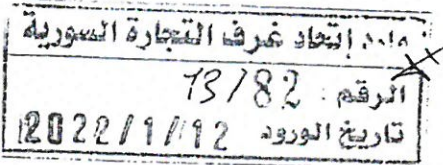 وارد إتحاد غرف التجارة السورية
الرقم : 13/82
تاريخ الورود 2022/1/12